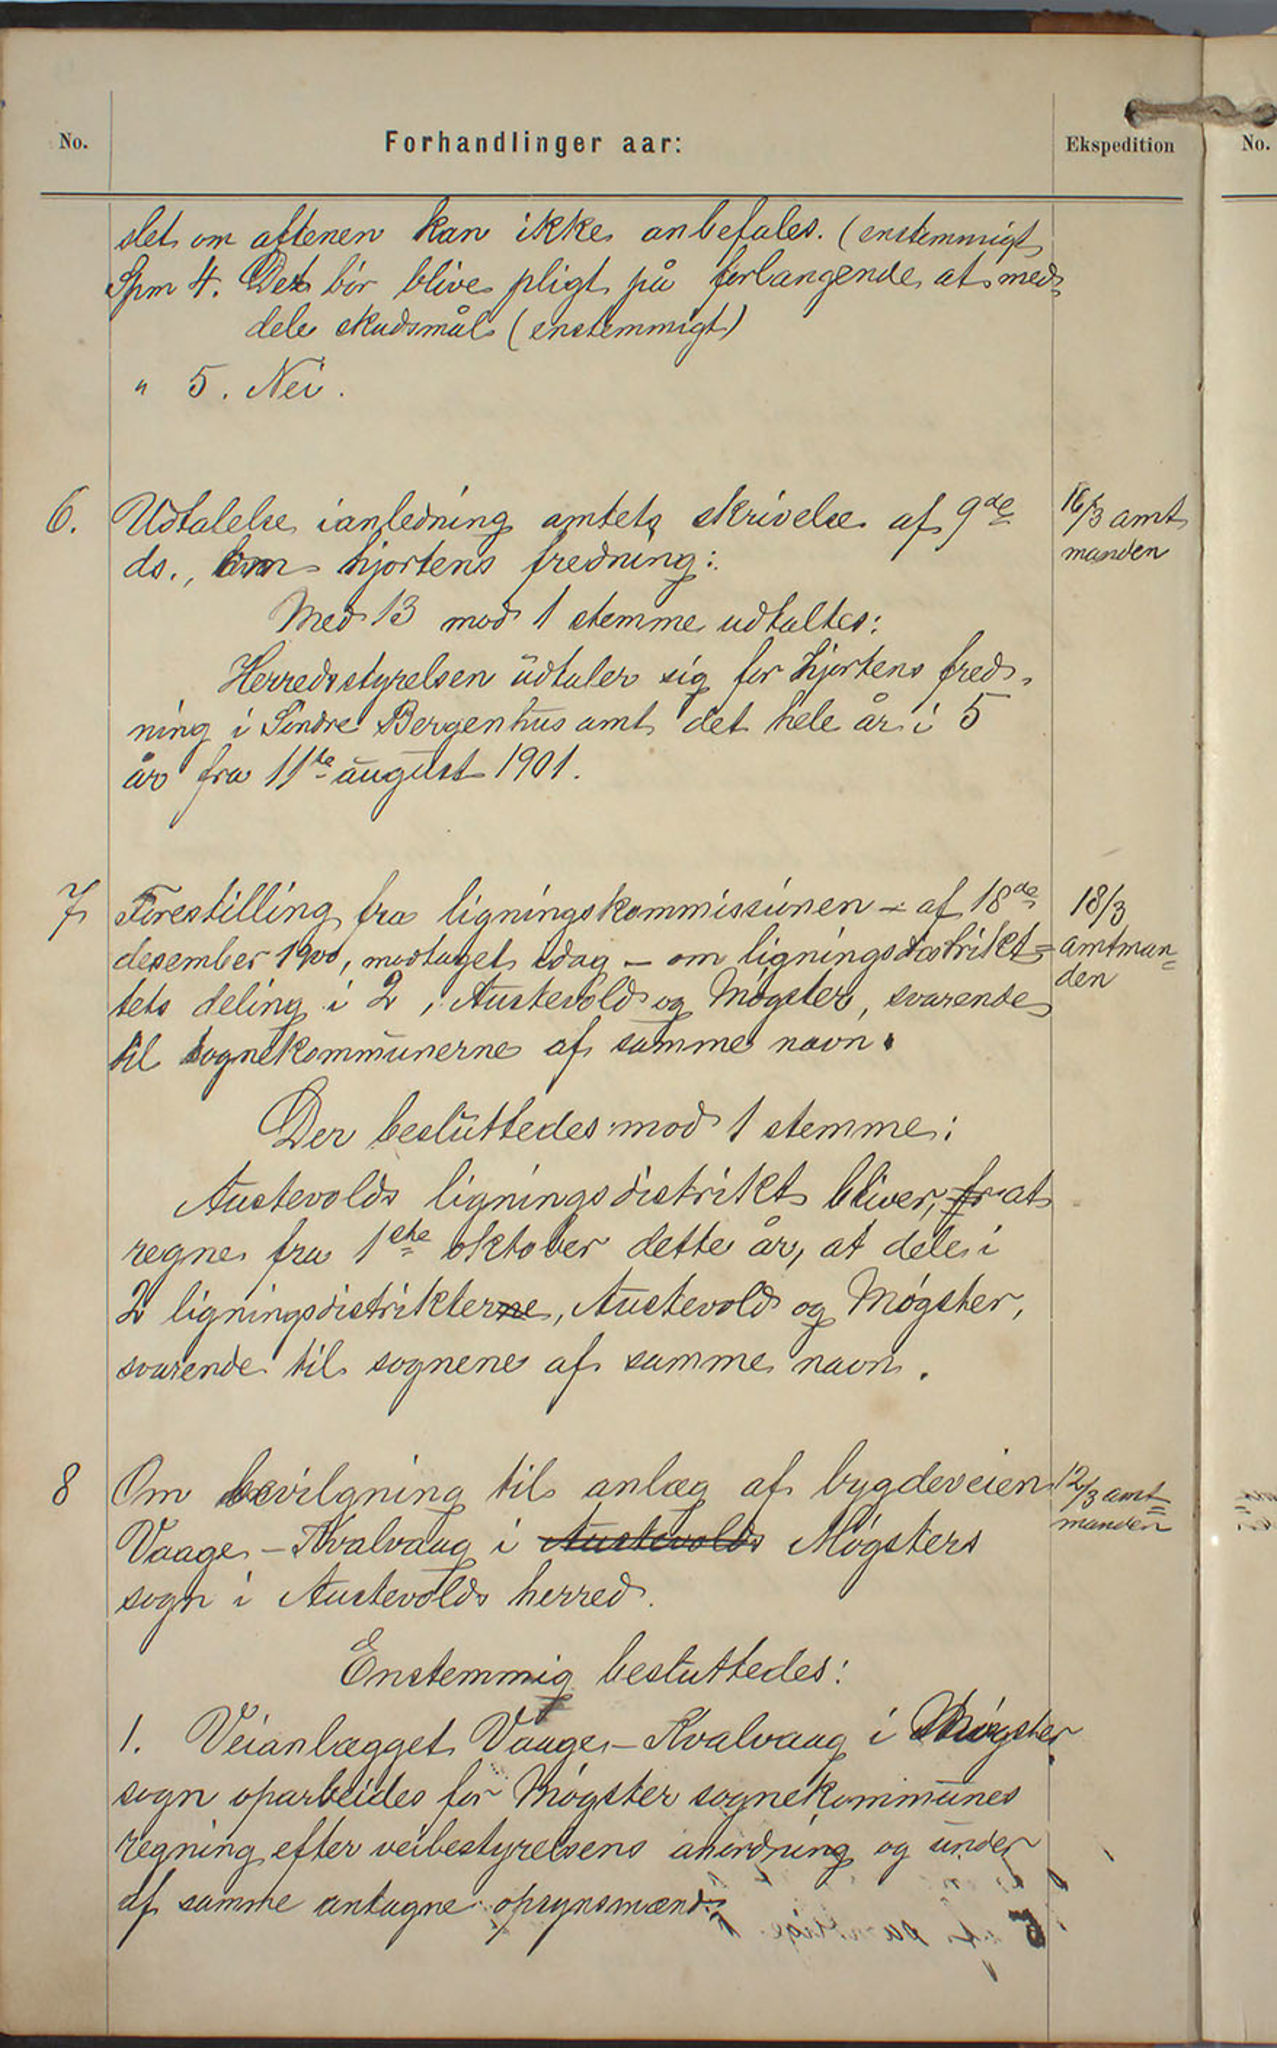 No. Forhandlinger aar: Ekspedition No.
slet om aftenen kan ikke anbefales. (enstemmigt
Spm 4. Det bör blive pligt på forlangende at med-
dele skudsmål (enstemmigt)
" 5. Nei.
6. Udtalelse ianledning amtets skrivelse af 9de 16/3 amt
ds., om hjortens fredning: manden
Med 13 mod 1 stemme udtaltes:
Herredsstyrelsen udtaler sig for hjortens fred-
ning i Söndre Bergenhus amt det hele år i 5
år fra 11te august 1901.
7 Forestilling fra ligningskommissionen – af 18de 18/3
desember 1900, modtaget idag – om ligningsdistrikt= amtman=
tets deling i 2, Austevold og Møgster, svarende den
til sognekommunerne af samme navn.
Der besluttedes mod 1 stemme:
Austevolds ligningsdistrikt bliver, fr at
regne fra 1ste oktober dette år, at dele i
2 ligningsdistrikterne, Austevold og Møgster,
svarende til sognene af samme navn.
8 Om bevilgning til anlæg af bygdeveien 12/3 amt=
Vaage – Kvalvaag i Austevolds Møgsters manden
sogn i Austevolds herred.
Enstemmig besluttedes:
1. Veianlægget Vaage – Kvalvaag i Møgster
sogn oparbeides for Møgster sognekommunes
regning efter veibestyrelsens anordning og under
af samme antagne opsynsmænd.